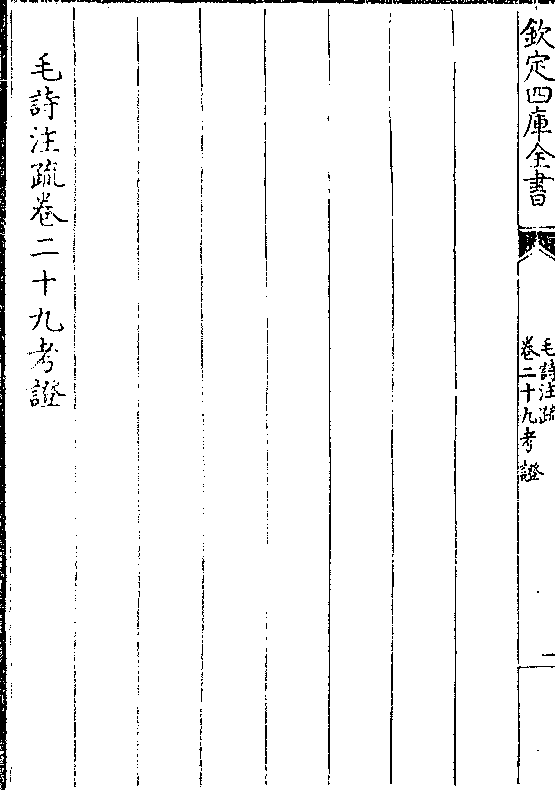 欽定四庫全書
毛詩注疏
卷二十九考證
一
毛詩注疏卷二十九考證